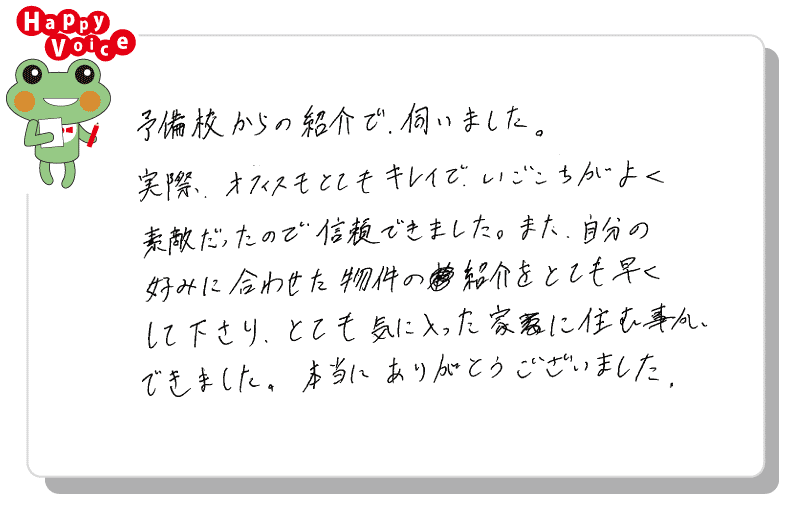 Happy
Voice
予備校からの紹介で、伺いました。
実際、オフィスもとてもキレイで、いごこちがよく
素敵だったので信頼できました。また、自分の
好みに合わせた物件の紹介をとても早く
して下さり、とても気に入った家に住む事が、
できました。本当にありがとうございました。